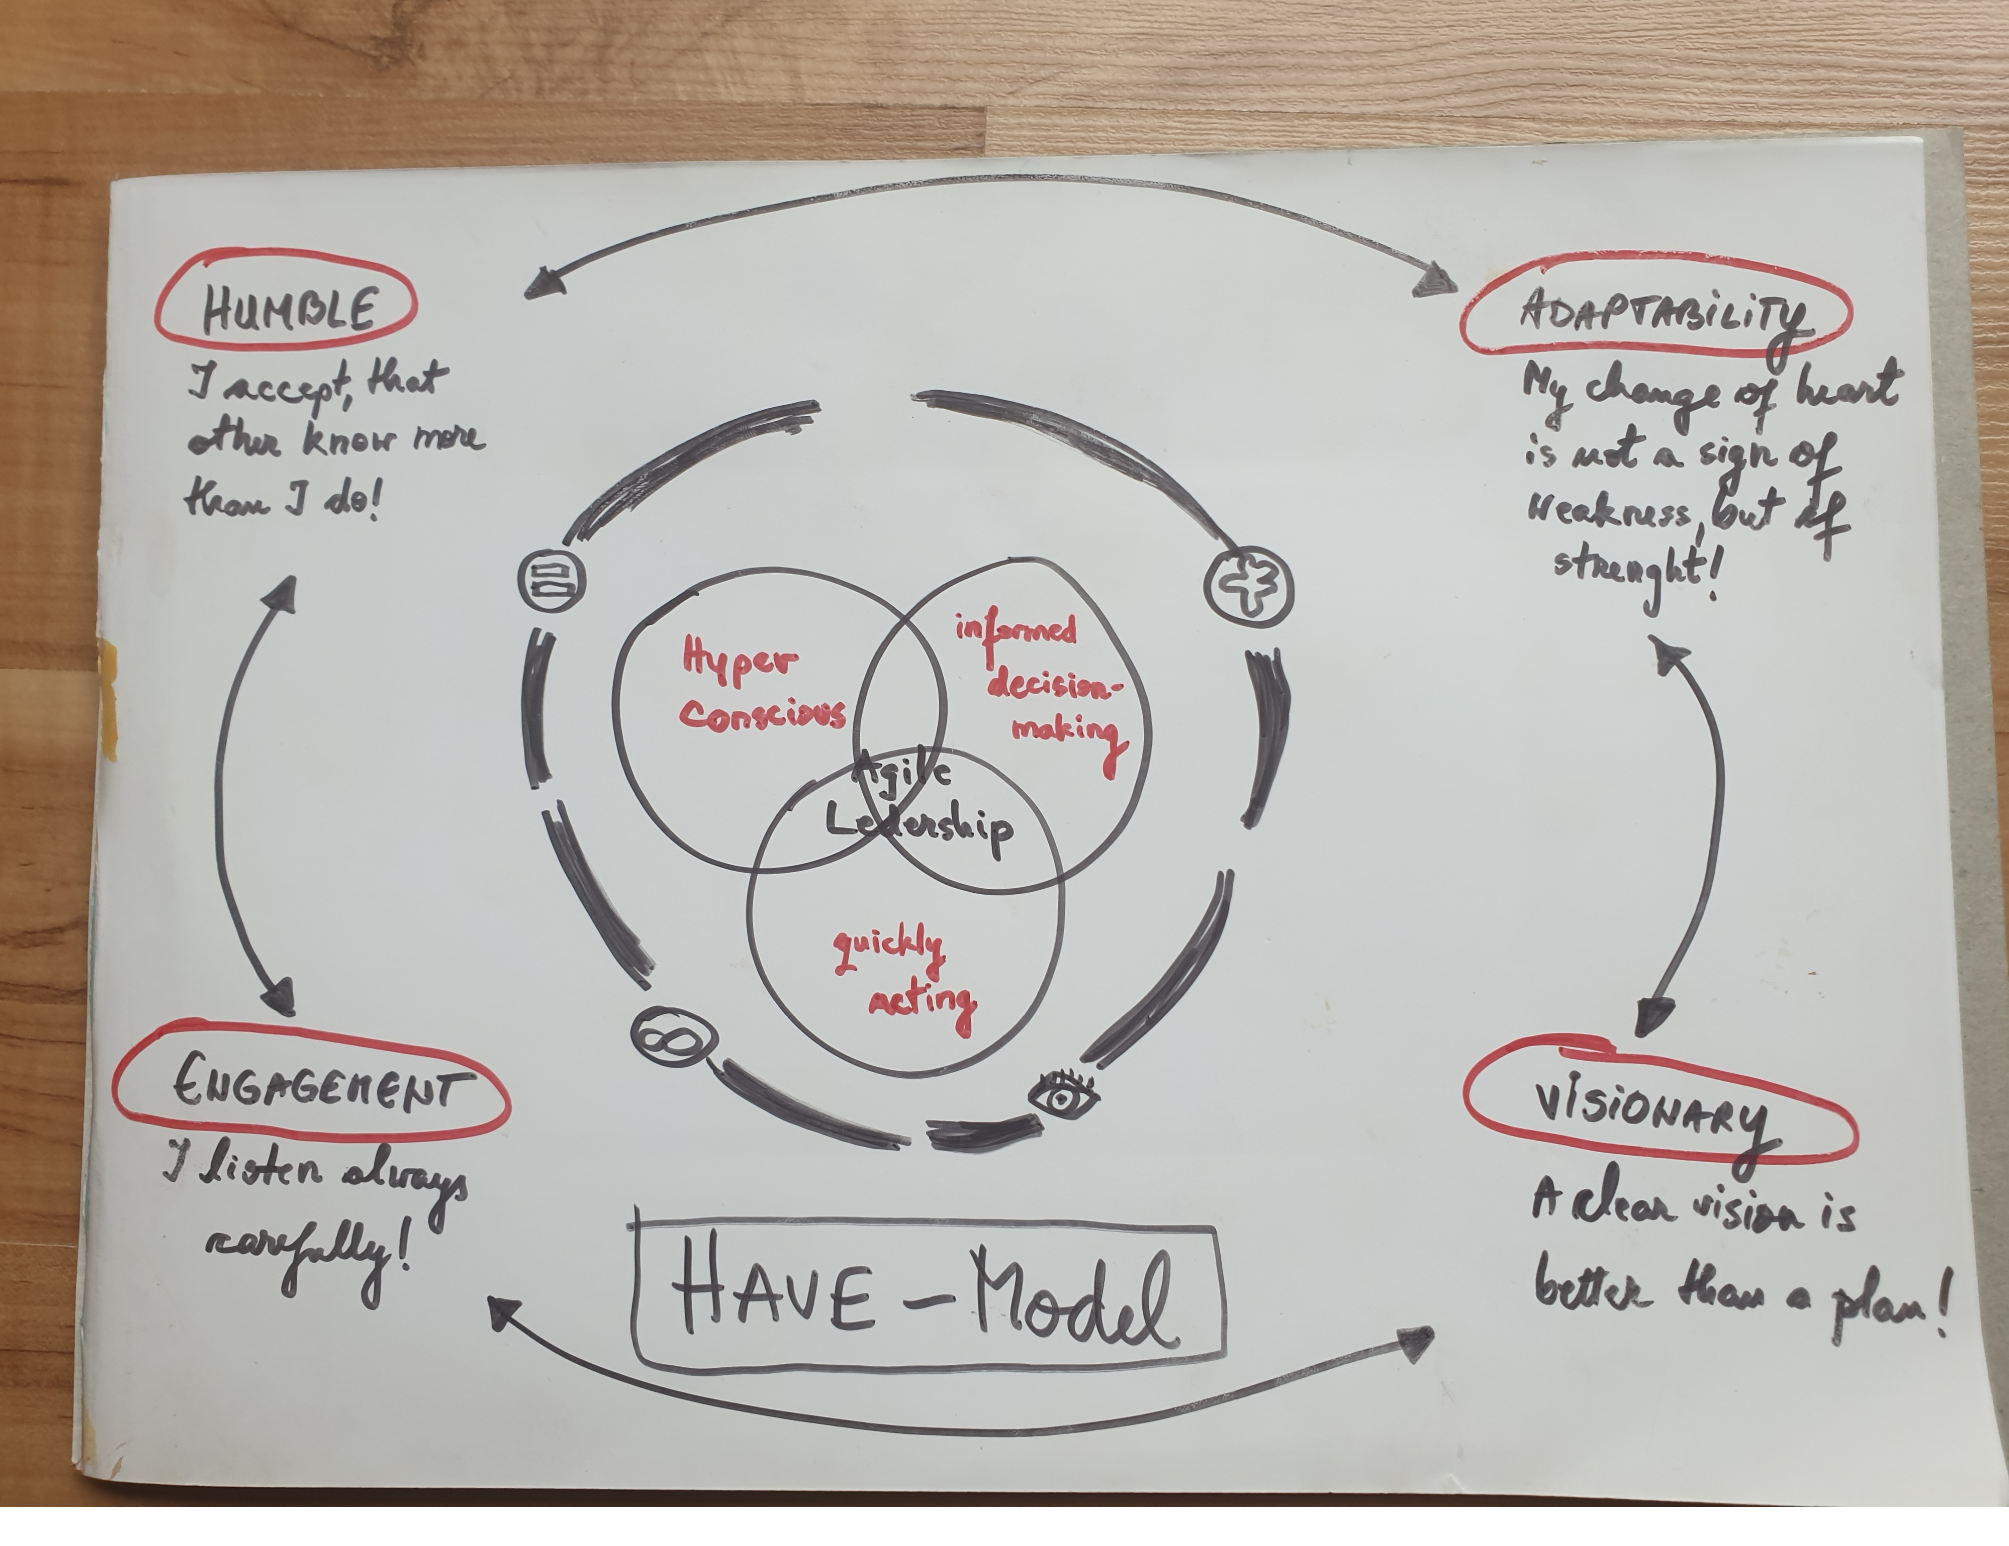 HUMBLE
I accept, that
other know more
than I do!
ADAPTABILITY
My change of heart
is not a sign of
weakness, but of
strenght!
Hyper
Conscious
informed
decision-
making
Agile
Ledership
quickly
acting
ENGAGEMENT
I listen always
carefully!
VISIONARY
A clear vision is
better than a plan!
HAVE - Model